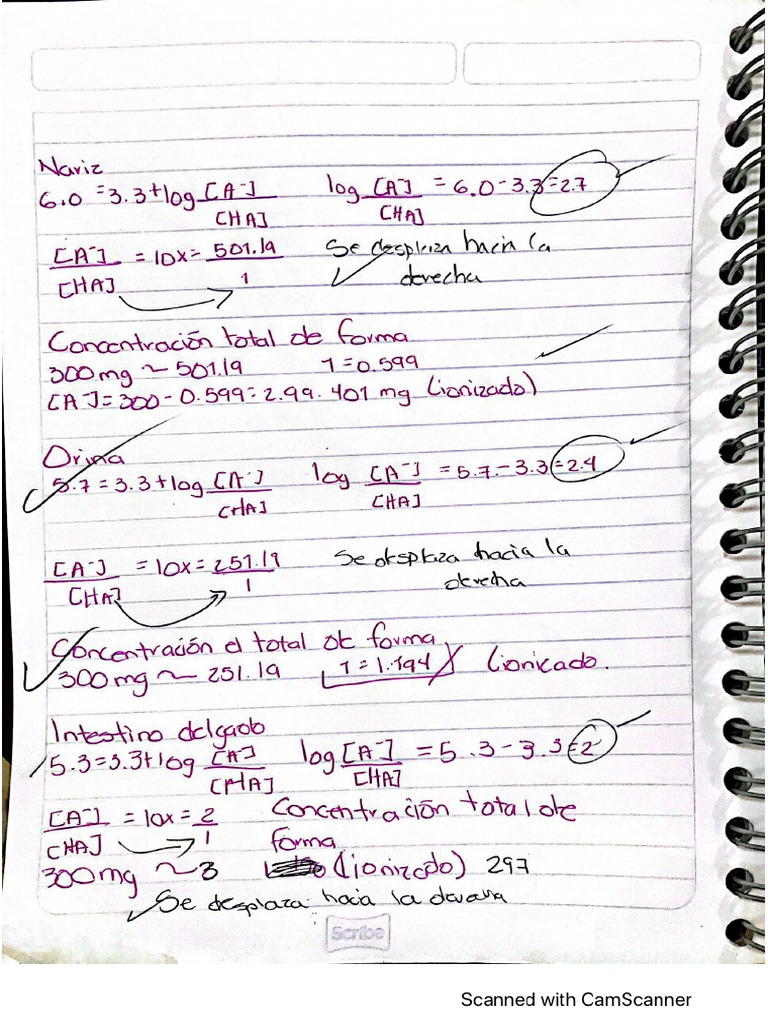 Nariz
6.0 = 3.3 + log [A⁻] / [HA]    log [A⁻] / [HA] = 6.0 - 3.3 = 2.7
[A⁻] / [HA] = 10x = 501.19 / 1    Se desplaza hacia la
derecha
Concentración total de forma
300 mg ~ 501.19    1 = 0.599
[A⁻] = 300 - 0.599 = 2.99.401 mg (ionizado)
Orina
5.7 = 3.3 + log [A⁻] / [HA]    log [A⁻] / [HA] = 5.7 - 3.3 = 2.4
[A⁻] / [HA] = 10x = 251.19 / 1    Se desplaza hacia la
derecha
Concentración el total de forma
300 mg ~ 251.19    1 = 1.194    (ionicado.
Intestino delgado
5.3 = 3.3 + log [A⁻] / [HA]    log [A⁻] / [HA] = 5.3 - 3.3 = 2
[A⁻] / [HA] = 10x = 2 / 1    Concentración total de
forma
300 mg ~ 3    (ionizado) 297
Se desplaza hacia la
Scribe
Scanned with CamScanner